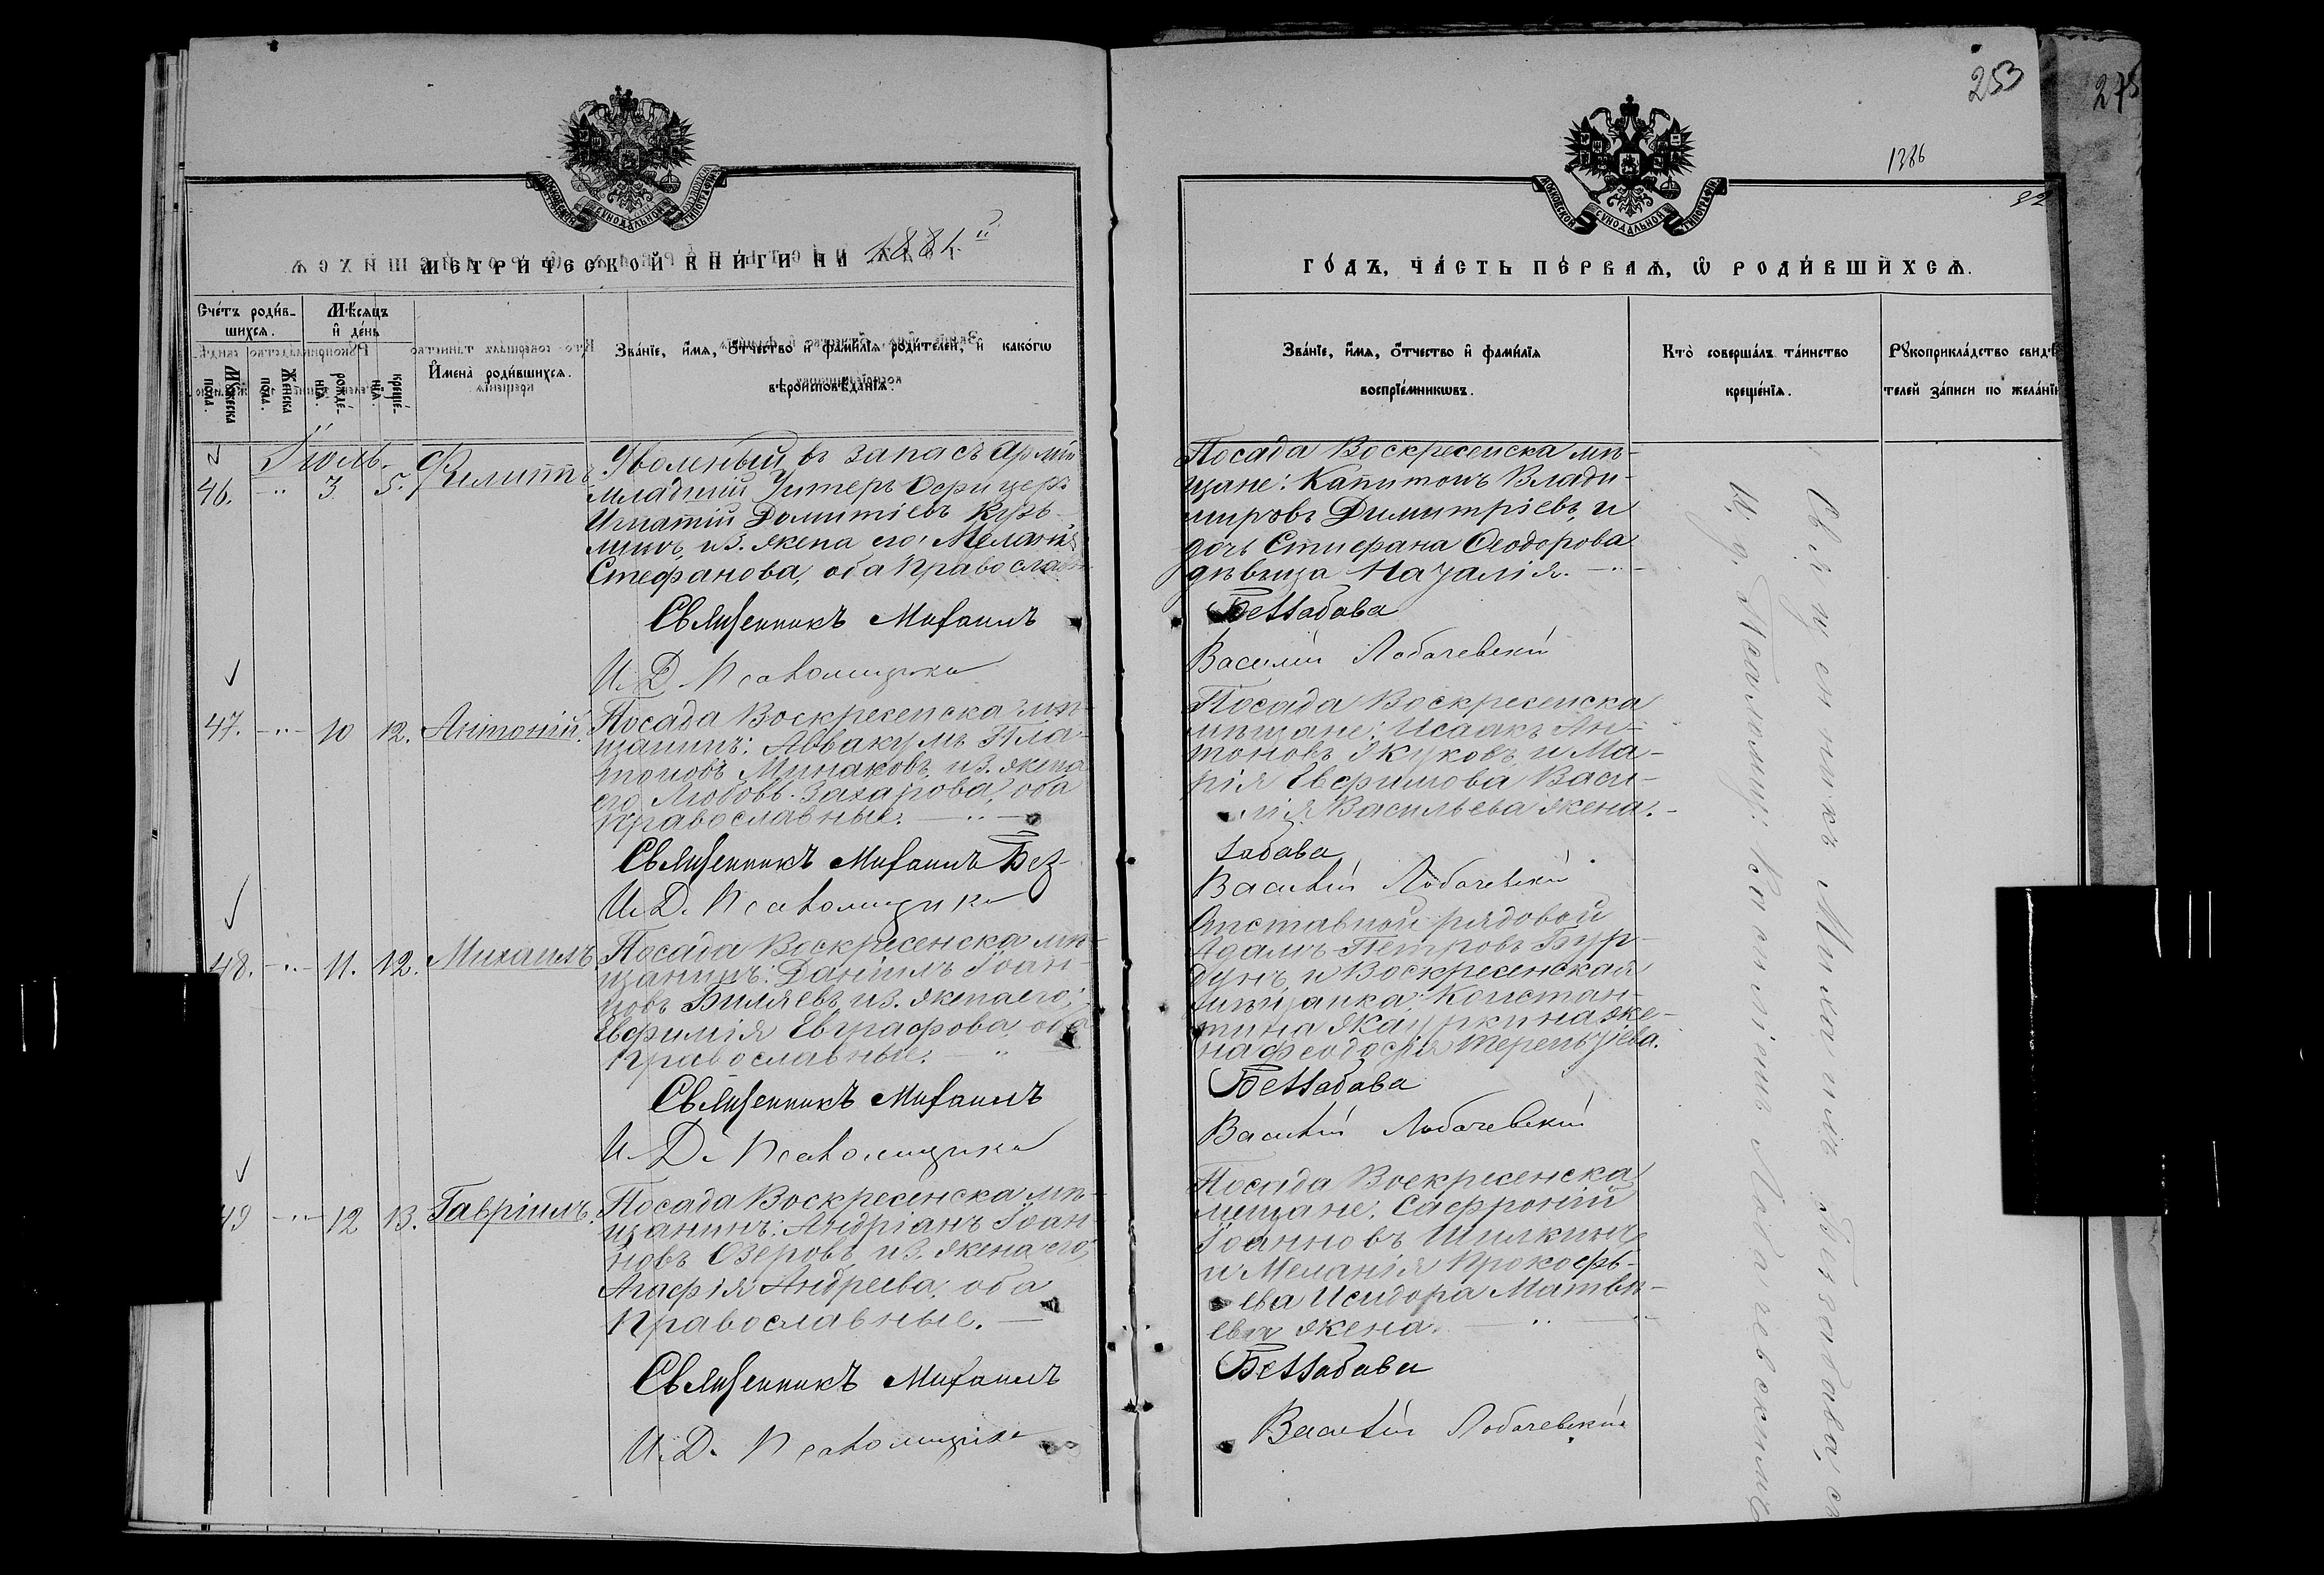 253
275
1386
92
МОСКОВСКОЙ СѴНОДАЛЬНОЙ ТИПОГРАФІИ
МОСКОВСКОЙ СѴНОДАЛЬНОЙ ТИПОГРАФІИ
МЕТРИЧЕСКОЙ КНИГИ НА 1881й
ГОДЪ, ЧАСТЬ ПЕРВАЯ, Ѡ РОДИВШИХСЯ.
Счетъ родив-
шихся.
Мѣсяцъ
и день
Мужеска
пола.
Женска
пола.
рожде-
нія.
креще-
нія.
Имена родившихся.
Званіе, имя, отчество и фамилія родителей, и какогѡ
вѣроисповѣданія.
Званіе, имя, отчество и фамилія
воспріемникѡвъ.
Кто совершалъ таинство
крещенія.
Рукоприкладство свидѣ
телей записи по желанію
Іюль.
46. -"- 3. 5. Филиппъ
Уволеный въ запасъ арміи
младшій Унтеръ Офицеръ
Игнатій Домитіевъ Кузь-
минъ, и з. жена его: Меланія
Стефанова, оба православн
Священникъ Михаилъ
И. Д. Псаломщика
Посада Воскресенска мѣ-
щане: Капитонъ Влади-
мировъ Димитріевъ, и
дочь Стефана Ѳеодорова
дѣвица Наталія. -"-
Беззабава
Василій Лобачевскій
47. -"- 10 12. Антоній.
Посада Воскресенска мѣ-
щанинъ: Аввакумъ Пла-
тоновъ Минаковъ, и з. жена
его Любовь Захарова, оба
православные. -"-
Священникъ Михаилъ Без-
И. Д. Псаломщика
Посада Воскресенска
мѣщане: Исаакъ Ан-
тоновъ Жуковъ, и Ма-
рія Евфимова Васи-
лія Васильева жена. -
забава
Василій Лобачевскій
48. -"- 11. 12. Михаилъ
Посада Воскресенска мѣ-
щанинъ: Даніилъ Іоан-
новъ Биляевъ, и з. жена его,
Евфимія Евграфова, оба
православные. "
Священникъ Михаилъ
И. Д. Псаломщика
Отставной рядовой
Адамъ Петровъ Бур-
дунъ, и Воскресенская
мѣщанка Констан-
тина Жауркина же-
на Феодосія Терентіева.
Беззабава
Василій Лобачевскій
49 -"- 12 13. Гавріилъ.
Посада Воскресенска мѣ-
щанинъ: Андріанъ Іоан-
новъ Озеровъ, и з. жена его,
Агафія Андреева, оба
православные. -
Священникъ Михаилъ
И. Д. Псаломщика
Посада Воскресенска
мещане: Сафроній
Іоанновъ Шилкинъ
и Меланія Прокофь-
ева Исидора Матвѣ-
ева жена. -"-
Беззабава
Василій Лобачевскій
Священникъ Михаилъ Беззабава, съ
И. д. Псаломщ. Василіемъ Лобачевскимъ